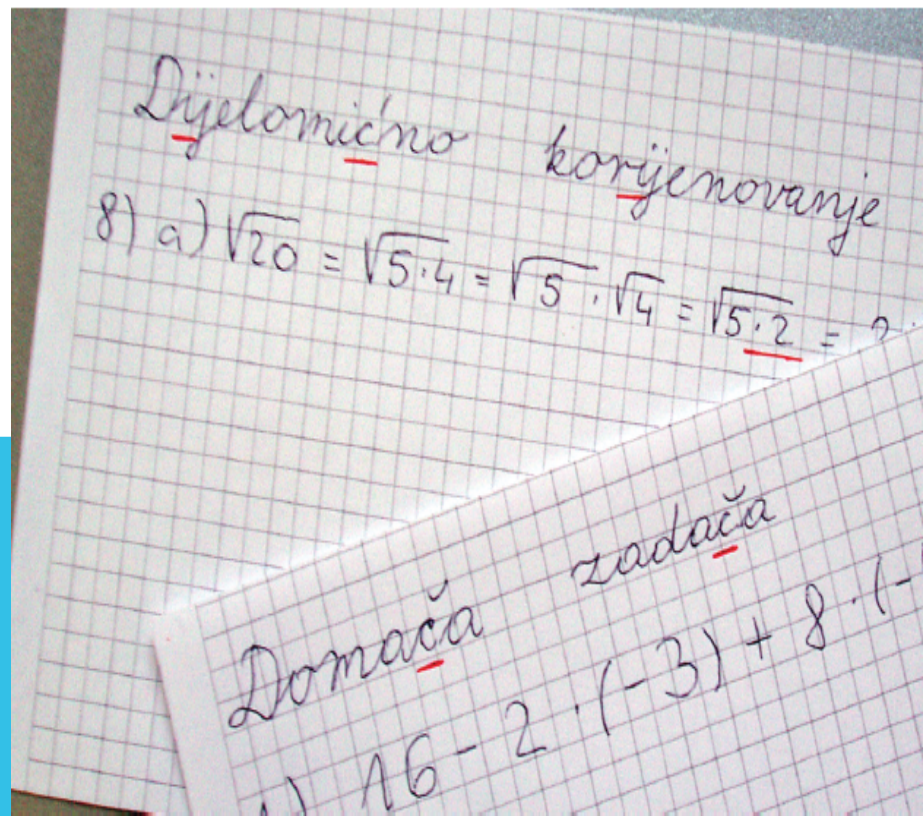 Dijelomićno korijenovanje
8) a) √20 = √5·4 = √5 · √4 = √5·2 = ?
Domača zadača
1) 16 - 2 · (-3) + 8 · (-